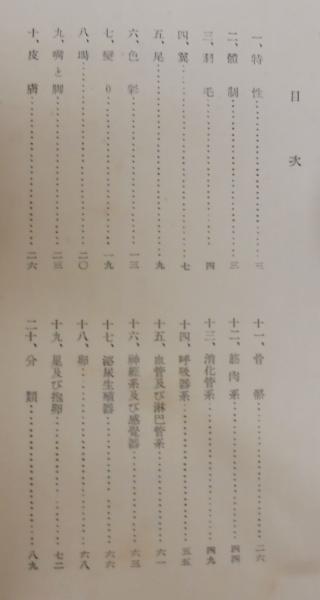 目次
一、特性……三
二、體制……三
三、羽毛……四
四、翼……七
五、尾……九
六、色彩……一三
七、變り……一九
八、鳴……二〇
九、嘴と脚……二三
十、皮膚……二六
十一、骨骼……二六
十二、筋肉系……四四
十三、消化管系……四九
十四、呼吸器系……五五
十五、血管及び淋巴管系……六一
十六、神經系及び感覺器……六三
十七、泌尿生殖器……六六
十八、卵……六八
十九、巢及び抱卵……七二
二十、分類……八九